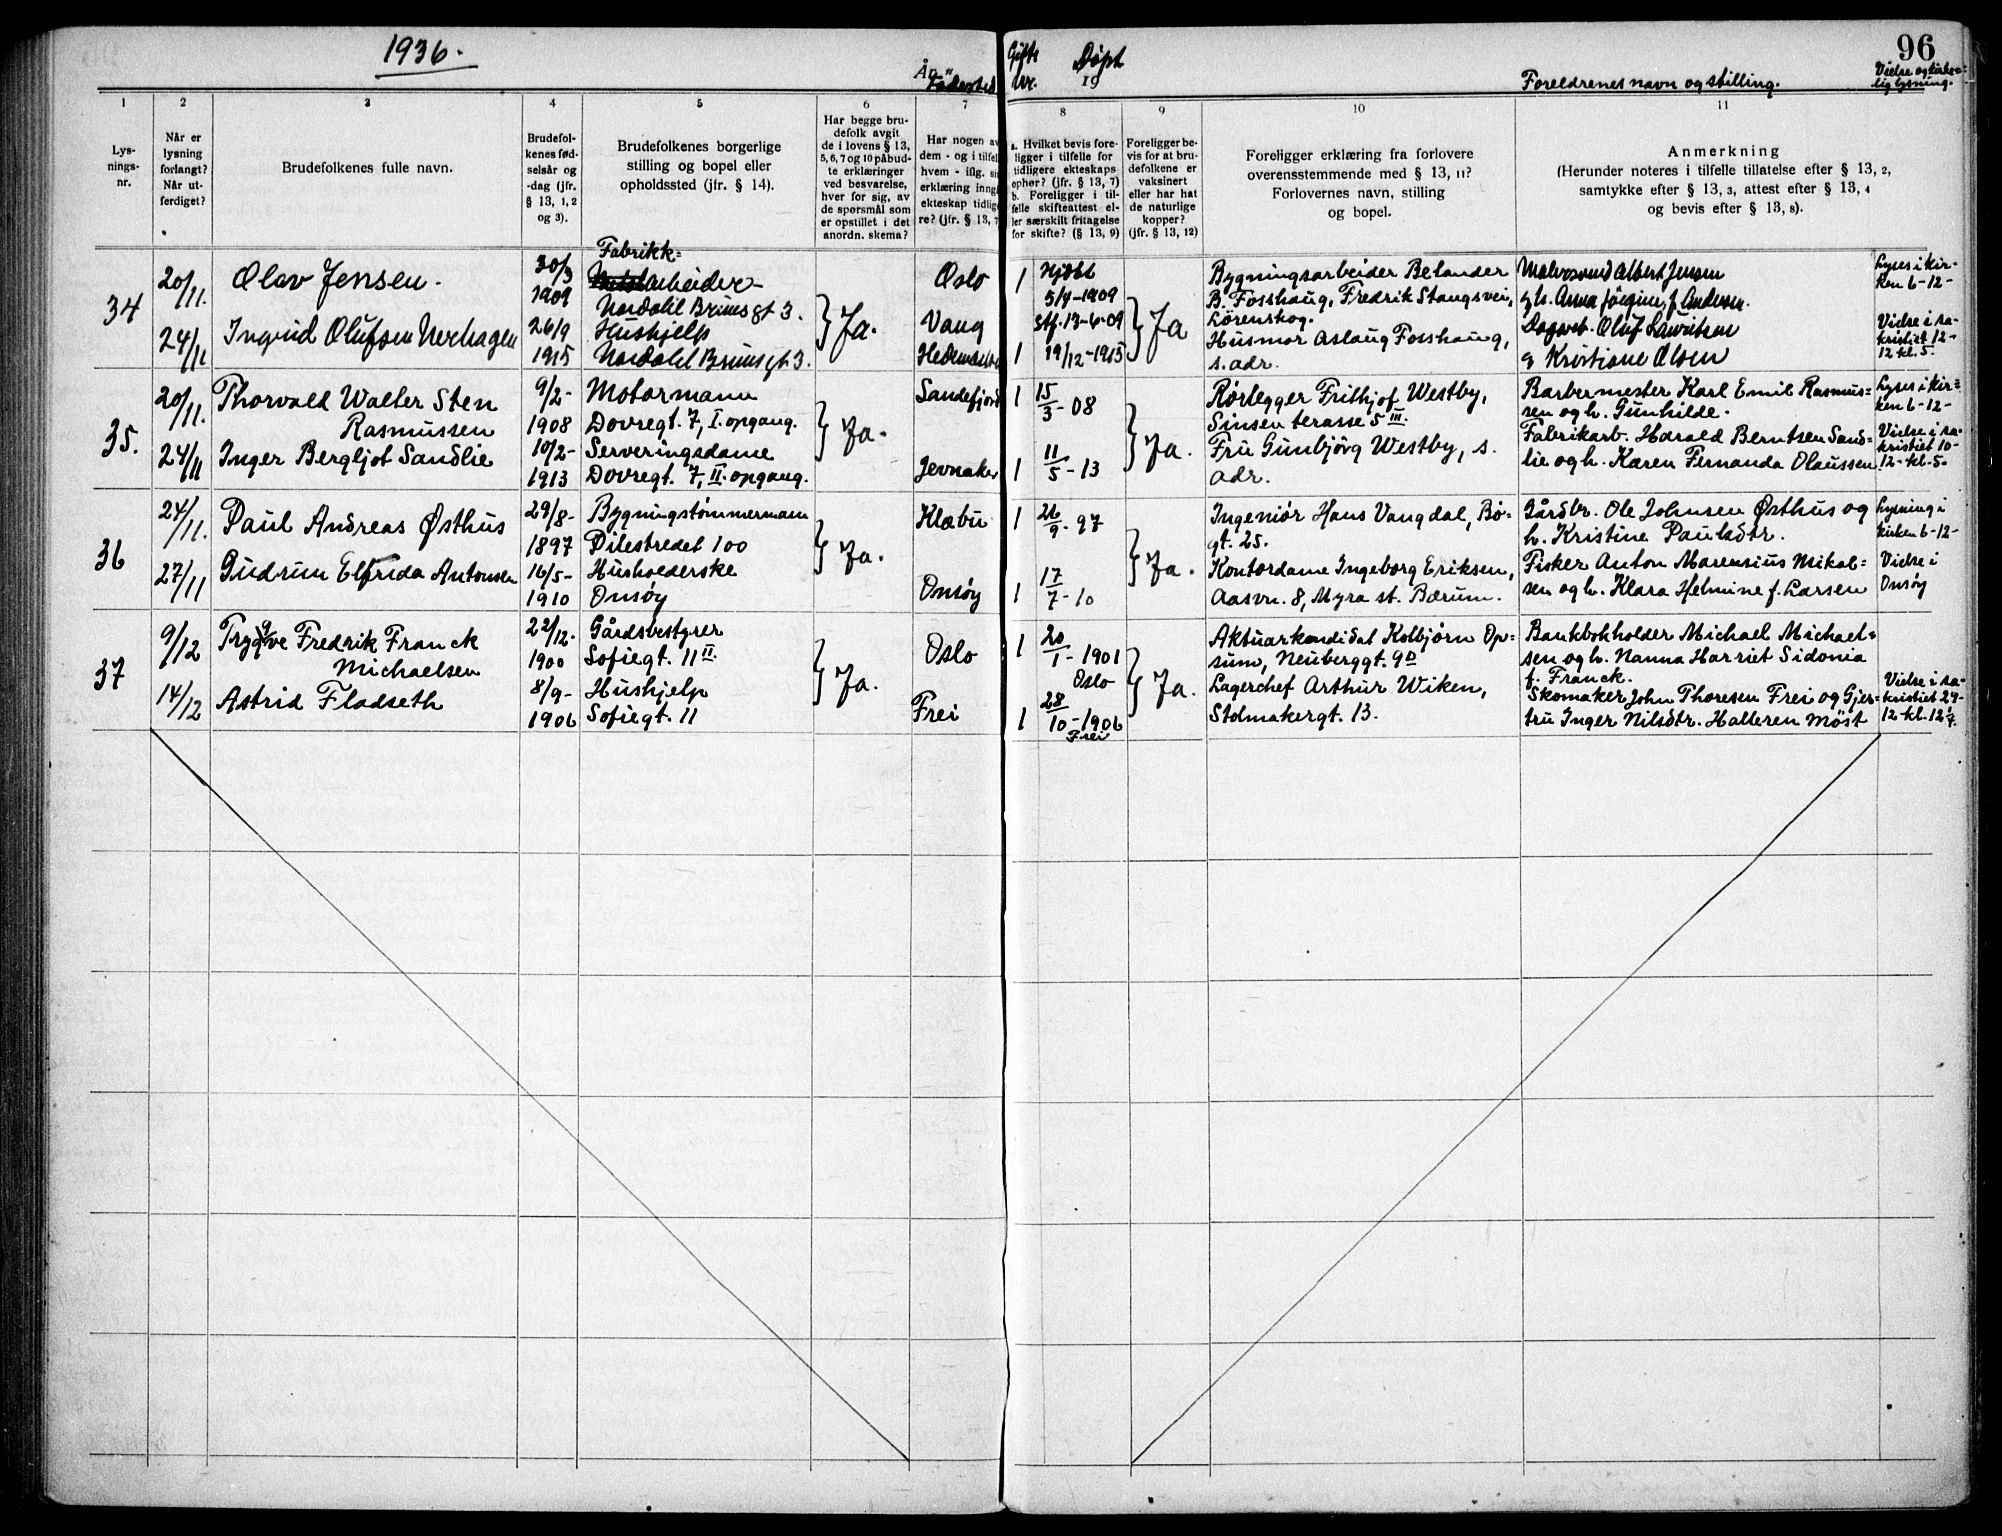 1936.
År
Fødested
Gifte
nr.
Døpt
19
Foreldrenes navn og stilling.
96
Vielse og kirke=
lig lysning.
1
2
3
4
5
6
7
8
9
10
11
Lys-
nings-
nr.
Når er
lysning
forlangt?
Når ut-
ferdiget?
Brudefolkenes fulle navn.
Brudefol-
kenes fød-
selsår og
-dag (jfr.
§ 13, 1, 2
og 3).
Brudefolkenes borgerlige
stilling og bopel eller
opholdssted (jfr. § 14).
Har begge bru-
defolk avgit
de i lovens § 13,
5, 6, 7 og 10 påbud-
te erklæringer
ved besvarelse,
hver for sig, av
de spørsmål som
er opstillet i det
anordn. skema?
Har nogen av
dem - og i tilfel
hvem - iflg. si
erklæring inng
ekteskap tidlig
re? (jfr. § 13, 7
a. Hvilket bevis fore-
ligger i tilfelle for
tidligere ekteskaps
ophør? (jfr. § 13, 7)
b. Foreligger i til-
felle skifteattest el-
ler særskilt fritagelse
for skifte? (§ 13, 9)
Foreligger be-
vis for at bru-
defolkene er
vaksinert
eller har hat
de naturlige
kopper?
(jfr. § 13, 12)
Foreligger erklæring fra forlovere
overensstemmende med § 13, 11?
Forlovernes navn, stilling
og bopel.
Anmerkning
(Herunder noteres i tilfelle tillatelse efter § 13, 2,
samtykke efter § 13, 3, attest efter § 13, 4
og bevis efter § 13, 8).
34
20/11.
24/11
Olav Jensen.
Ingrid Olufsen Nerhagen
30/3
1909
26/9
1915
Fabrikk=
arbeider
Nordahl Brunsgt 3.
Hushjelp
Nordahl Brunsgt 3.
Ja.
Oslo
Vang
Hedemarken
1
1
Hjdbt
5/4-1909
Stf. 13-6-09
19/12-1915
Ja
Bygningsarbeider Belander
B. Fosshaug, Fredrik Stangsvei,
Lørenskog.
Husmor Aslaug Fosshaug,
s. adr.
Albert Jensen
og h. Anna Jørgine f. Andersen.
Dagarb. Oluf Lauritsen
og Kristiane Olsen
Lyses i kir-
ken 6-12-
Vielse i sa-
kristiet 12-
12 kl. 5.
35.
20/11.
24/11
Thorvald Walter Sten
Rasmussen
Inger Bergljot Sandlie
9/2-
1908
10/2-
1913
Motormann
Dovregt. 7, I. opgang.
Serveringsdame
Dovregt. 7, II. opgang.
Ja.
Sandefjord
Jevnaker
1
1
15/3-08
11/5-13
Ja.
Rørlegger Frithjof Westby,
Sinsen terasse 5 III.
Fru Gunbjörg Westby, s.
adr.
Barbermester Karl Emil Rasmus=
sen og h. Gunhilde.
Fabrikarb. Harald Berntsen Sand=
lie og h. Karen Fernanda Olaussen
Lyses i kir=
ken 6-12-
Vielse i sa-
kristiet 10-
12-kl. 5.
36
24/11.
27/11
Paul Andreas Østhus
Gudrun Elfrida Antonsen
29/8-
1897
16/5-
1910
Bygningstømmermann
Pilestredet 100
Husholderske
Onsøy
Ja.
Klæbu
Onsøy
1
1
26/9-97
17/7-10
Ja.
Ingeniør Hans Vangdal, Bø-
gt. 25.
Kontordame Ingeborg Eriksen,
Aasvn. 8, Myra st. Bærum.
Gårdbr. Ole Johnsen Østhus og
h. Kristine Paulsdtr.
Fisker Anton Marensius Mikal=
sen og h. Klara Helmine f. Larsen
Lysning i
kirken 6-12-
Vielse i
Onsøy
37
9/12
14/12
Trygve Fredrik Franck
Michaelsen
Astrid Fladseth
22/12-
1900
8/9-
1906
Gårdsbestyrer
Sofiegt. 11 II
Hushjelp
Sofiegt. 11
Ja.
Oslo
Frei
1
1
20/1-1901
Oslo
28/10-1906
Frei
Ja.
Aktuarkandidat Kolbjørn Op=
sum, Neuberggt. 9D
Lagerchef Arthur Wiken,
Stolmakergt. 13.
Bankbokholder Michael Michael=
sen og h. Nanna Harriet Sidonia
f. Franck.
Skomaker John Thoresen Frei og Gjer=
tru Inger Nilsdtr. Halteren Møst
Vielse i sa-
kristiet 29-
12-kl. 12 1/4.